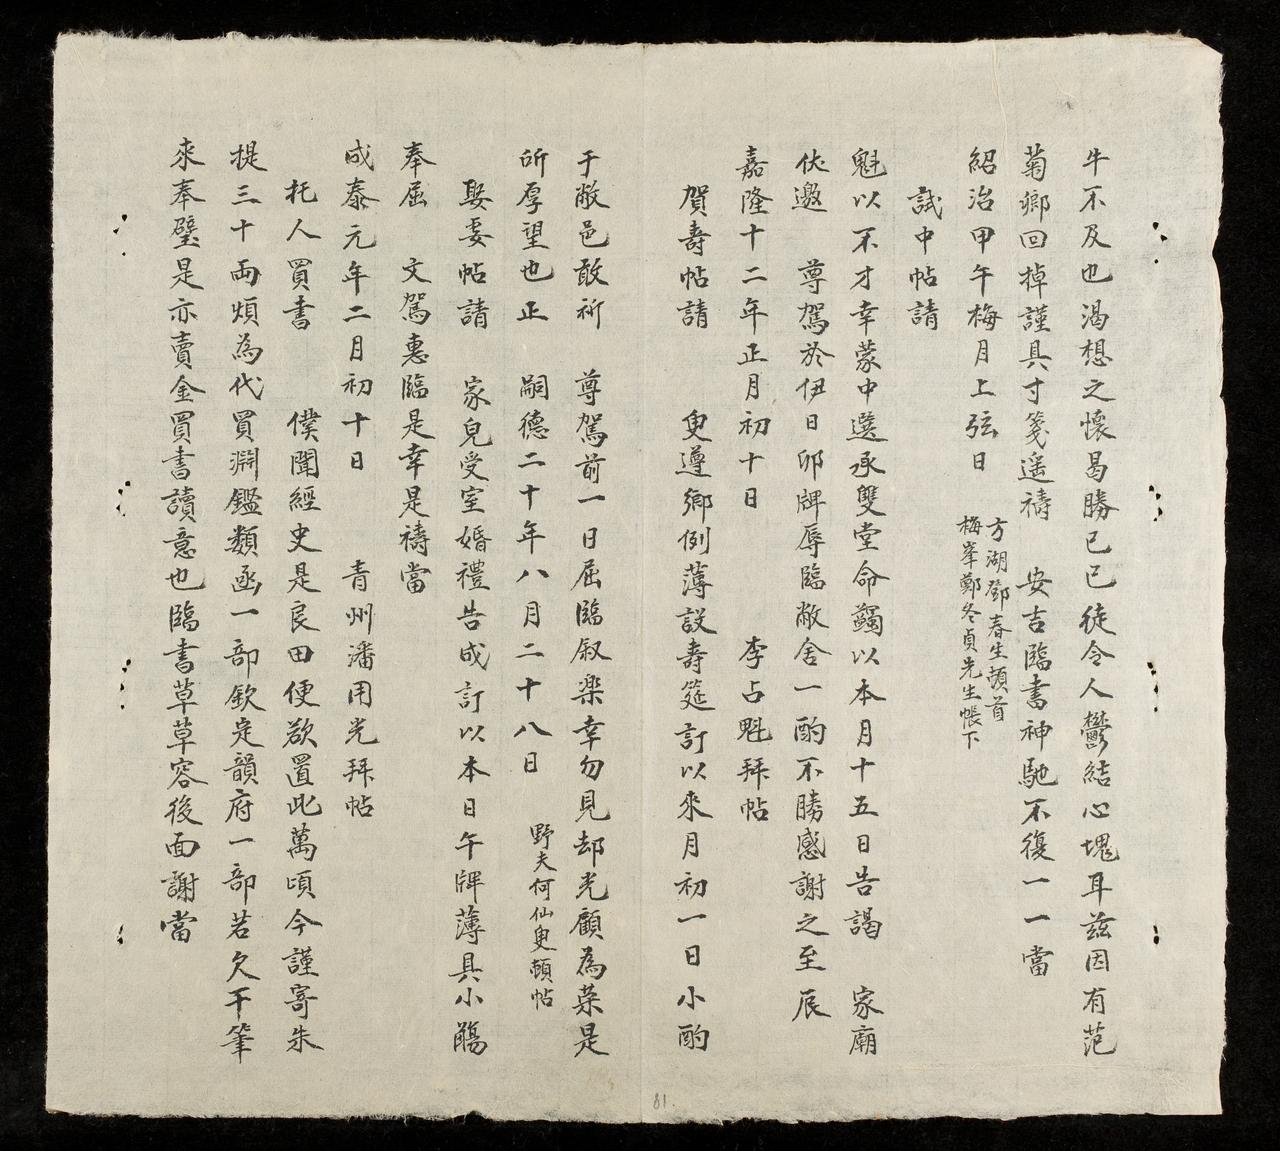 牛不及也渴想之懷曷勝已已徒令人鬱結心塊耳茲因有范
菊鄉回掉謹具寸箋遥禱　安吉臨書神馳不復一一當
紹治甲午梅月上弦日
方湖鄧春生頓首
梅峯鄭冬貞先生帳下
試中帖請
魁以不才幸蒙中選承雙堂命蠲以本月十五日告謁　家廟
伏邀　尊駕於伊日卯牌辱臨敝舍一酌不勝感謝之至辰
嘉隆十二年正月初十日　李占魁拜帖
賀壽帖請　叟遵鄉例薄設壽筵訂以來月初一日小酌
于敝邑敢祈　尊駕前一日屈臨叙楽幸勿見却光顧為荣是
所厚望也正　嗣德二十年八月二十八日　野夫何仙叟頓帖
娶妻帖請　家兒受室婚禮告成訂以本日午牌薄具小觴
奉屈　文駕惠臨是幸是禱當
成泰元年二月初十日　青州潘用光拜帖
托人買書　僕聞經史是良田便欲置此萬頃今謹寄朱
提三十両煩為代買淵鑑類函一部欽定韻府一部若欠干筆
來奉璧是亦賣金買書讀意也臨書草草容後面謝當
81